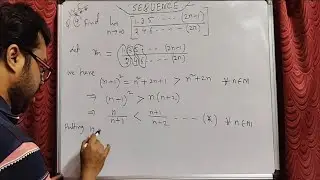 SEQUENCE
Q. Find lim n→∞ [1·3·5 ---- (2n-1) / 2·4·6 ---- (2n)]
let xn = 1·3·5 ---- (2n-1) / 2·4·6 ---- (2n)
We have
(n+1)² = n²+2n+1 > n²+2n ∀ n∈ℕ
⇒ (n+1)² > n(n+2)
⇒ n/n+1 < n+1/n+2 ---- (*) ∀ n∈ℕ
Putting n